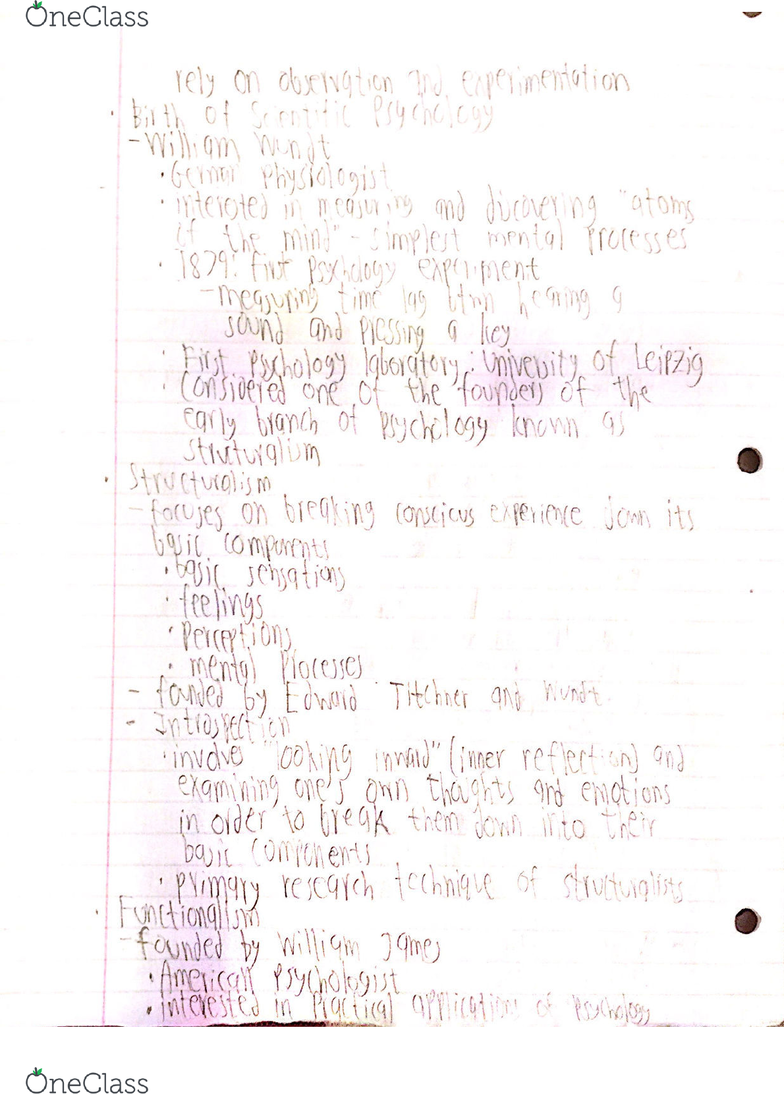 OneClass
rely on observation and experimentation
· Birth of Scientific Psychology
- William Wundt
· German Physiologist
· interested in measuring and discovering "atoms
of the mind" - simplest mental processes
· 1879: first psychology experiment
- measuring time lag btwn hearing a
sound and pressing a key
· First psychology laboratory: University of Leipzig
· Considered one of the founders of the
early branch of psychology known as
structuralism
· Structuralism
- focuses on breaking conscious experience down its
basic components
· basic sensations
· feelings
· Perceptions
· mental Processes
- founded by Edward Titchner and Wundt
- Introspection
· involves "looking inward" (inner reflection) and
examining one's own thoughts and emotions
in order to break them down into their
basic components
· primary research technique of structuralists
· Functionalism
- founded by William James
· American psychologist
· interested in Practical applications of psychology
OneClass